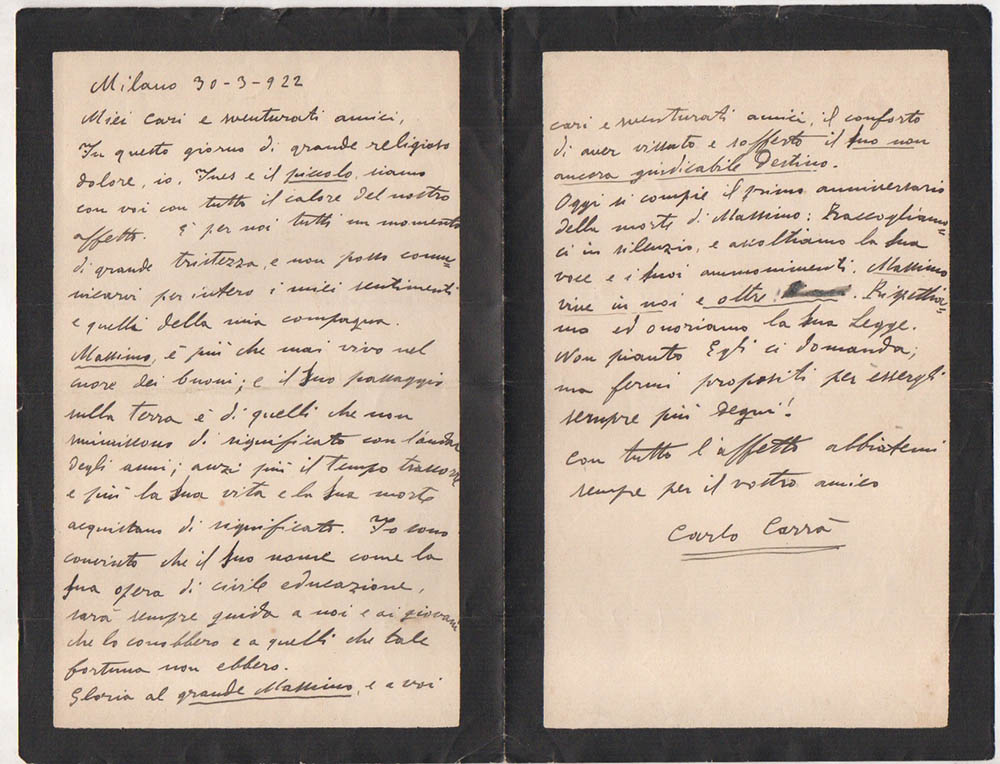 Milano 30-3-922
Miei cari e sventurati amici,
In questo giorno di grande religioso
dolore, io, Ines e il piccolo, siamo
con voi con tutto il calore del nostro
affetto. È per noi tutti un momento
di grande tristezza, e non posso comu-
nicarvi per intero i miei sentimenti
e quelli della mia compagna.
Massimo, è più che mai vivo nel
cuore dei buoni; e il Suo passaggio
sulla terra è di quelli che non
sminuiscono di significato con l'andar
degli anni; anzi più il Tempo trascorre
e più la Sua vita e la Sua morte
acquistano di significato. Io sono
convinto che il Suo nome come la
Sua opera di civile educazione,
sarà sempre guida a noi e ai giovani
che lo conobbero e a quelli che tale
fortuna non ebbero.
Gloria al grande Massimo, e a voi
cari e sventurati amici, il conforto
di aver vissuto e sofferto il Suo non
ancora giudicabile Destino.
Oggi si compie il primo anniversario
della morte di Massimo: Raccogliamo-
ci in silenzio, e ascoltiamo la Sua
voce e i Suoi ammonimenti. Massimo
vive in noi e oltre. Rispettia-
mo ed onoriamo la Sua Legge.
Non pianto Egli ci domanda;
ma fermi propositi per essergli
sempre più degni!
Con tutto l'affetto abbiatemi
sempre per il vostro amico
Carlo Carrà